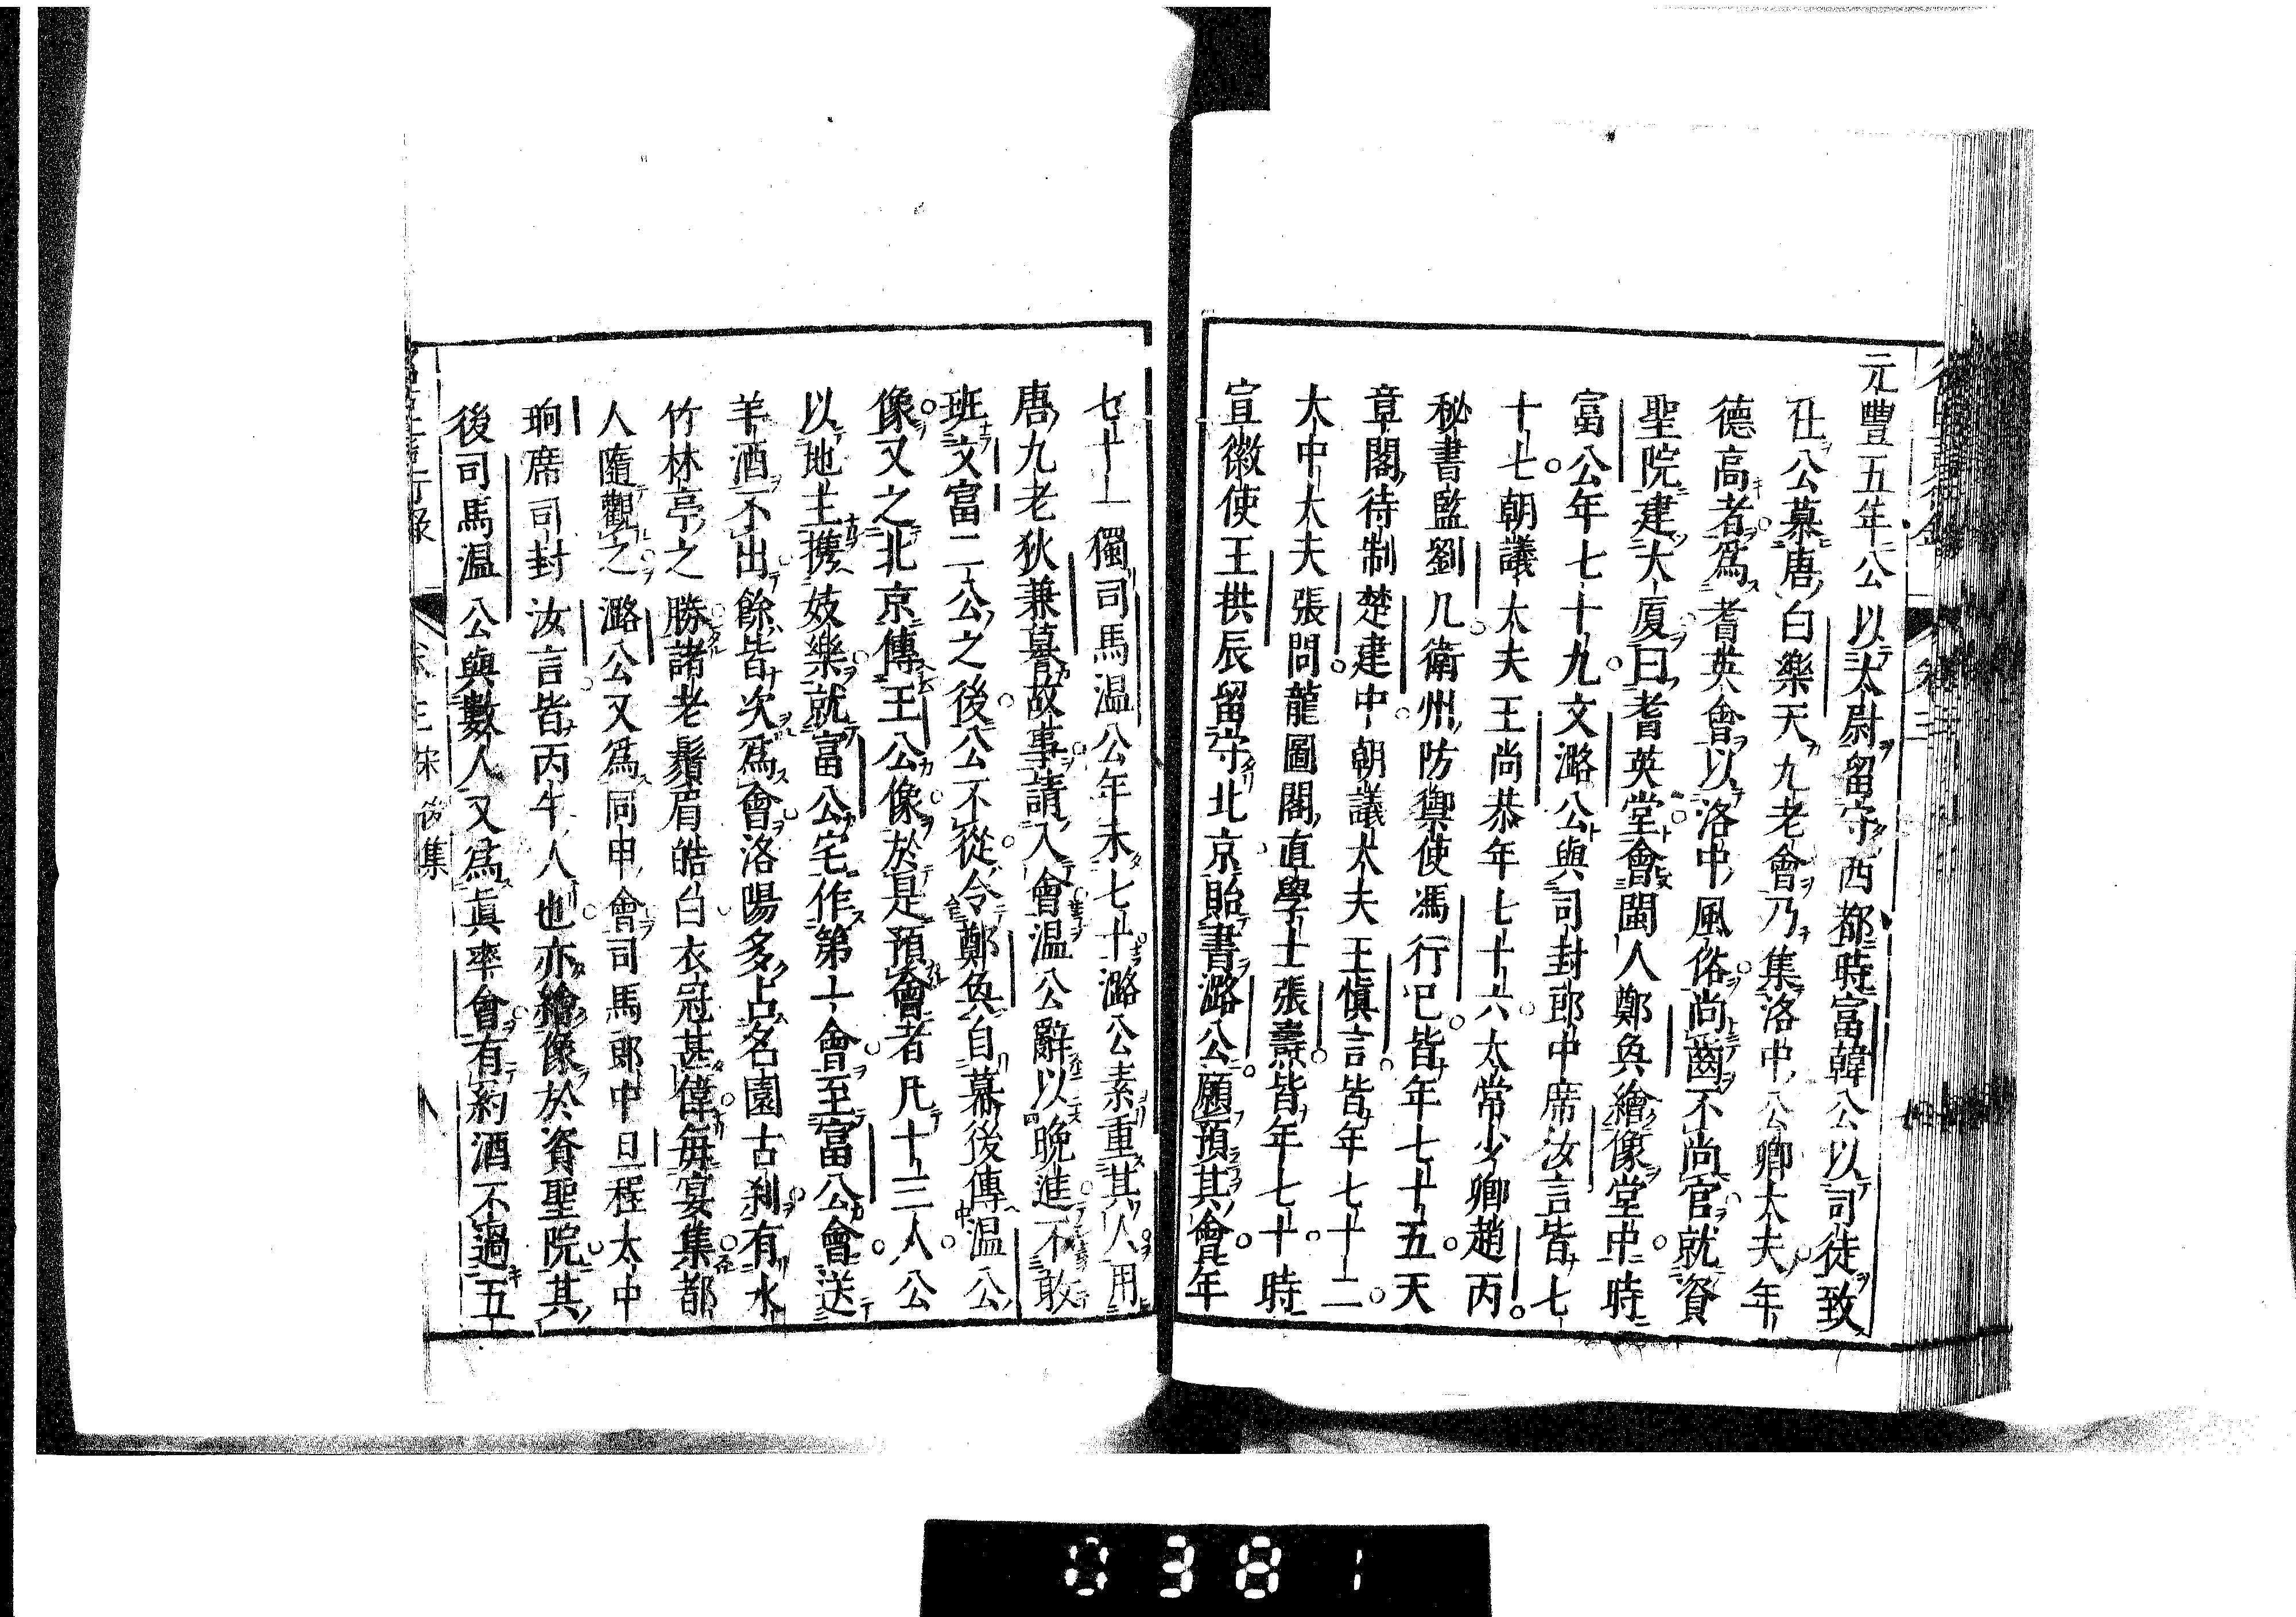 元豐五年公以太尉留守西都時富韓公以司徒致
仕公慕唐白樂天九老會乃集洛中公卿大夫年
德高者爲耆英會以洛中風俗尚齒不尚官就資
聖院建大厦曰耆英堂會閩人鄭奐繪像堂中時
富公年七十九文潞公與司封郎中席汝言皆七
十七朝議太夫王尚恭年七十六太常少卿趙丙
秘書監劉几衛州防禦使馮行已皆年七十五天
章閣待制楚建中朝議太夫王愼言皆年七十二
太中大夫張問龍圖閣直學士張燾皆年七十時
宣徽使王拱辰留守北京貽書潞公願預其會年
七十一獨司馬温公年未七十潞公素重其人用
唐九老狄兼謩故事請入會温公辭以晩進不敢
班文富二公之後公不從令鄭奐自幕後傳温公
像又之北京傳王公像於是預會者凡十三人公
以地主携妓樂就富公宅作第一會至富公會送
羊酒不出餘皆次爲會洛陽多占名園古刹有水
竹林亭之勝諸老鬚眉皓白衣冠甚偉毎宴集都
人隨觀之潞公又爲同甲會司馬郎中旦程太中
珦席司封汝言皆丙午人也亦繪像於資聖院其
後司馬温公與數人又爲眞率會有約酒不過五
後集